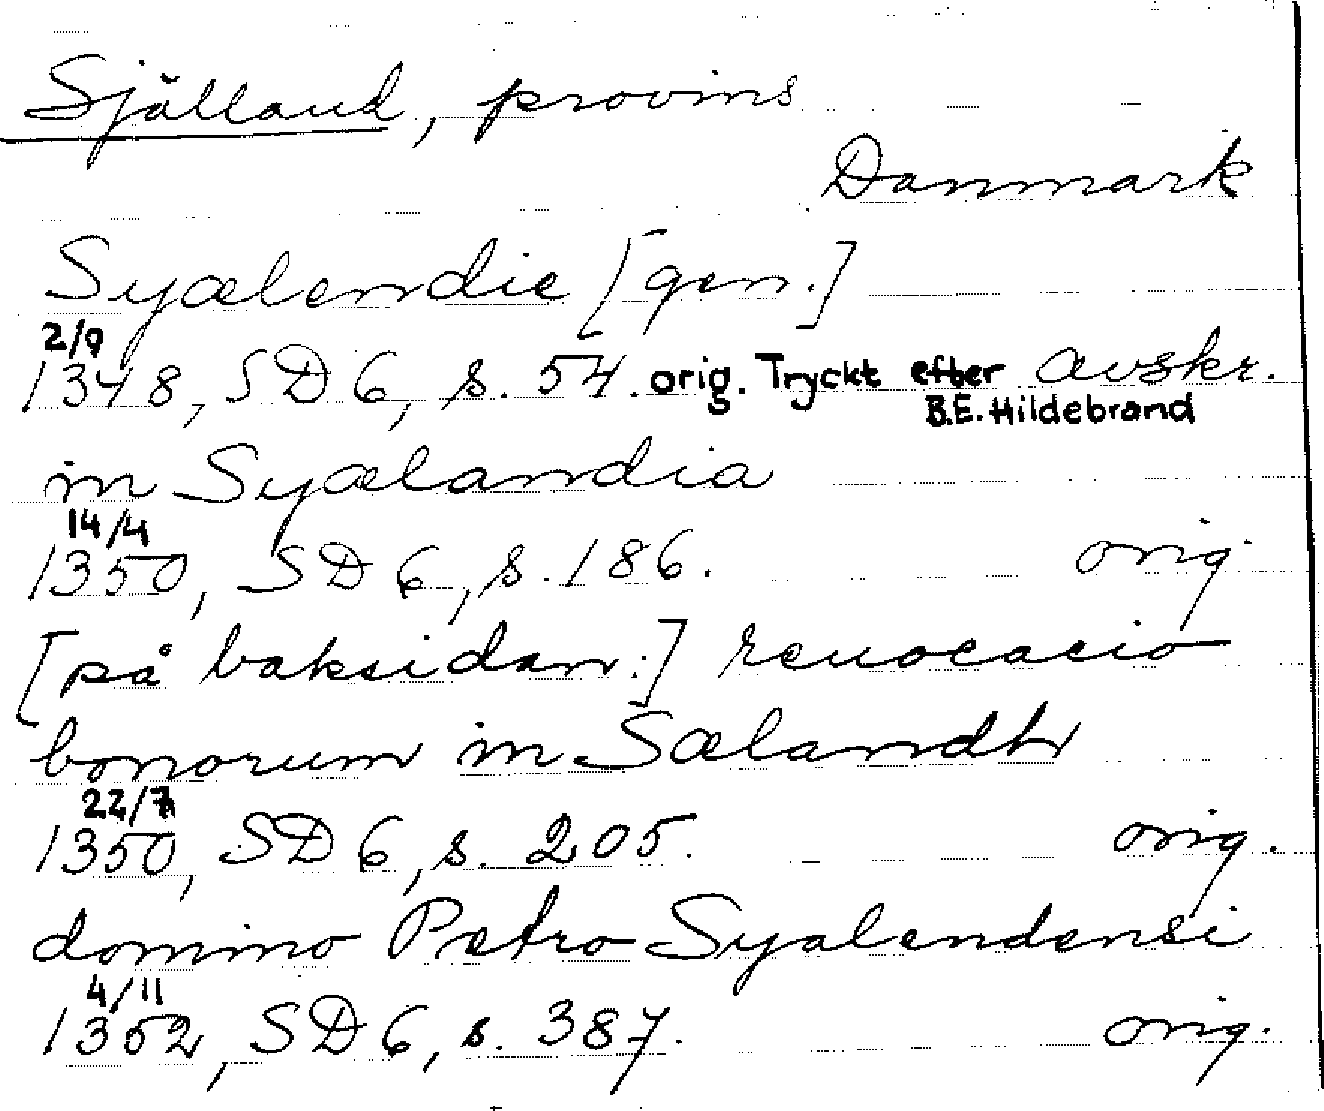 Själland, provins
Danmark
Syælendie [gen.]
2/9
1348, SD 6, s. 54. orig. Tryckt efter avskr.
B.E. Hildebrand
in Syælandia
14/4
1350, SD 6, s. 186. orig
[på baksidan:] reuocacio
bonorum in Sælandh
22/7
1350, SD 6, s. 205. orig.
domino Petro Syalendensi
4/11
1352, SD 6, s. 387. orig.